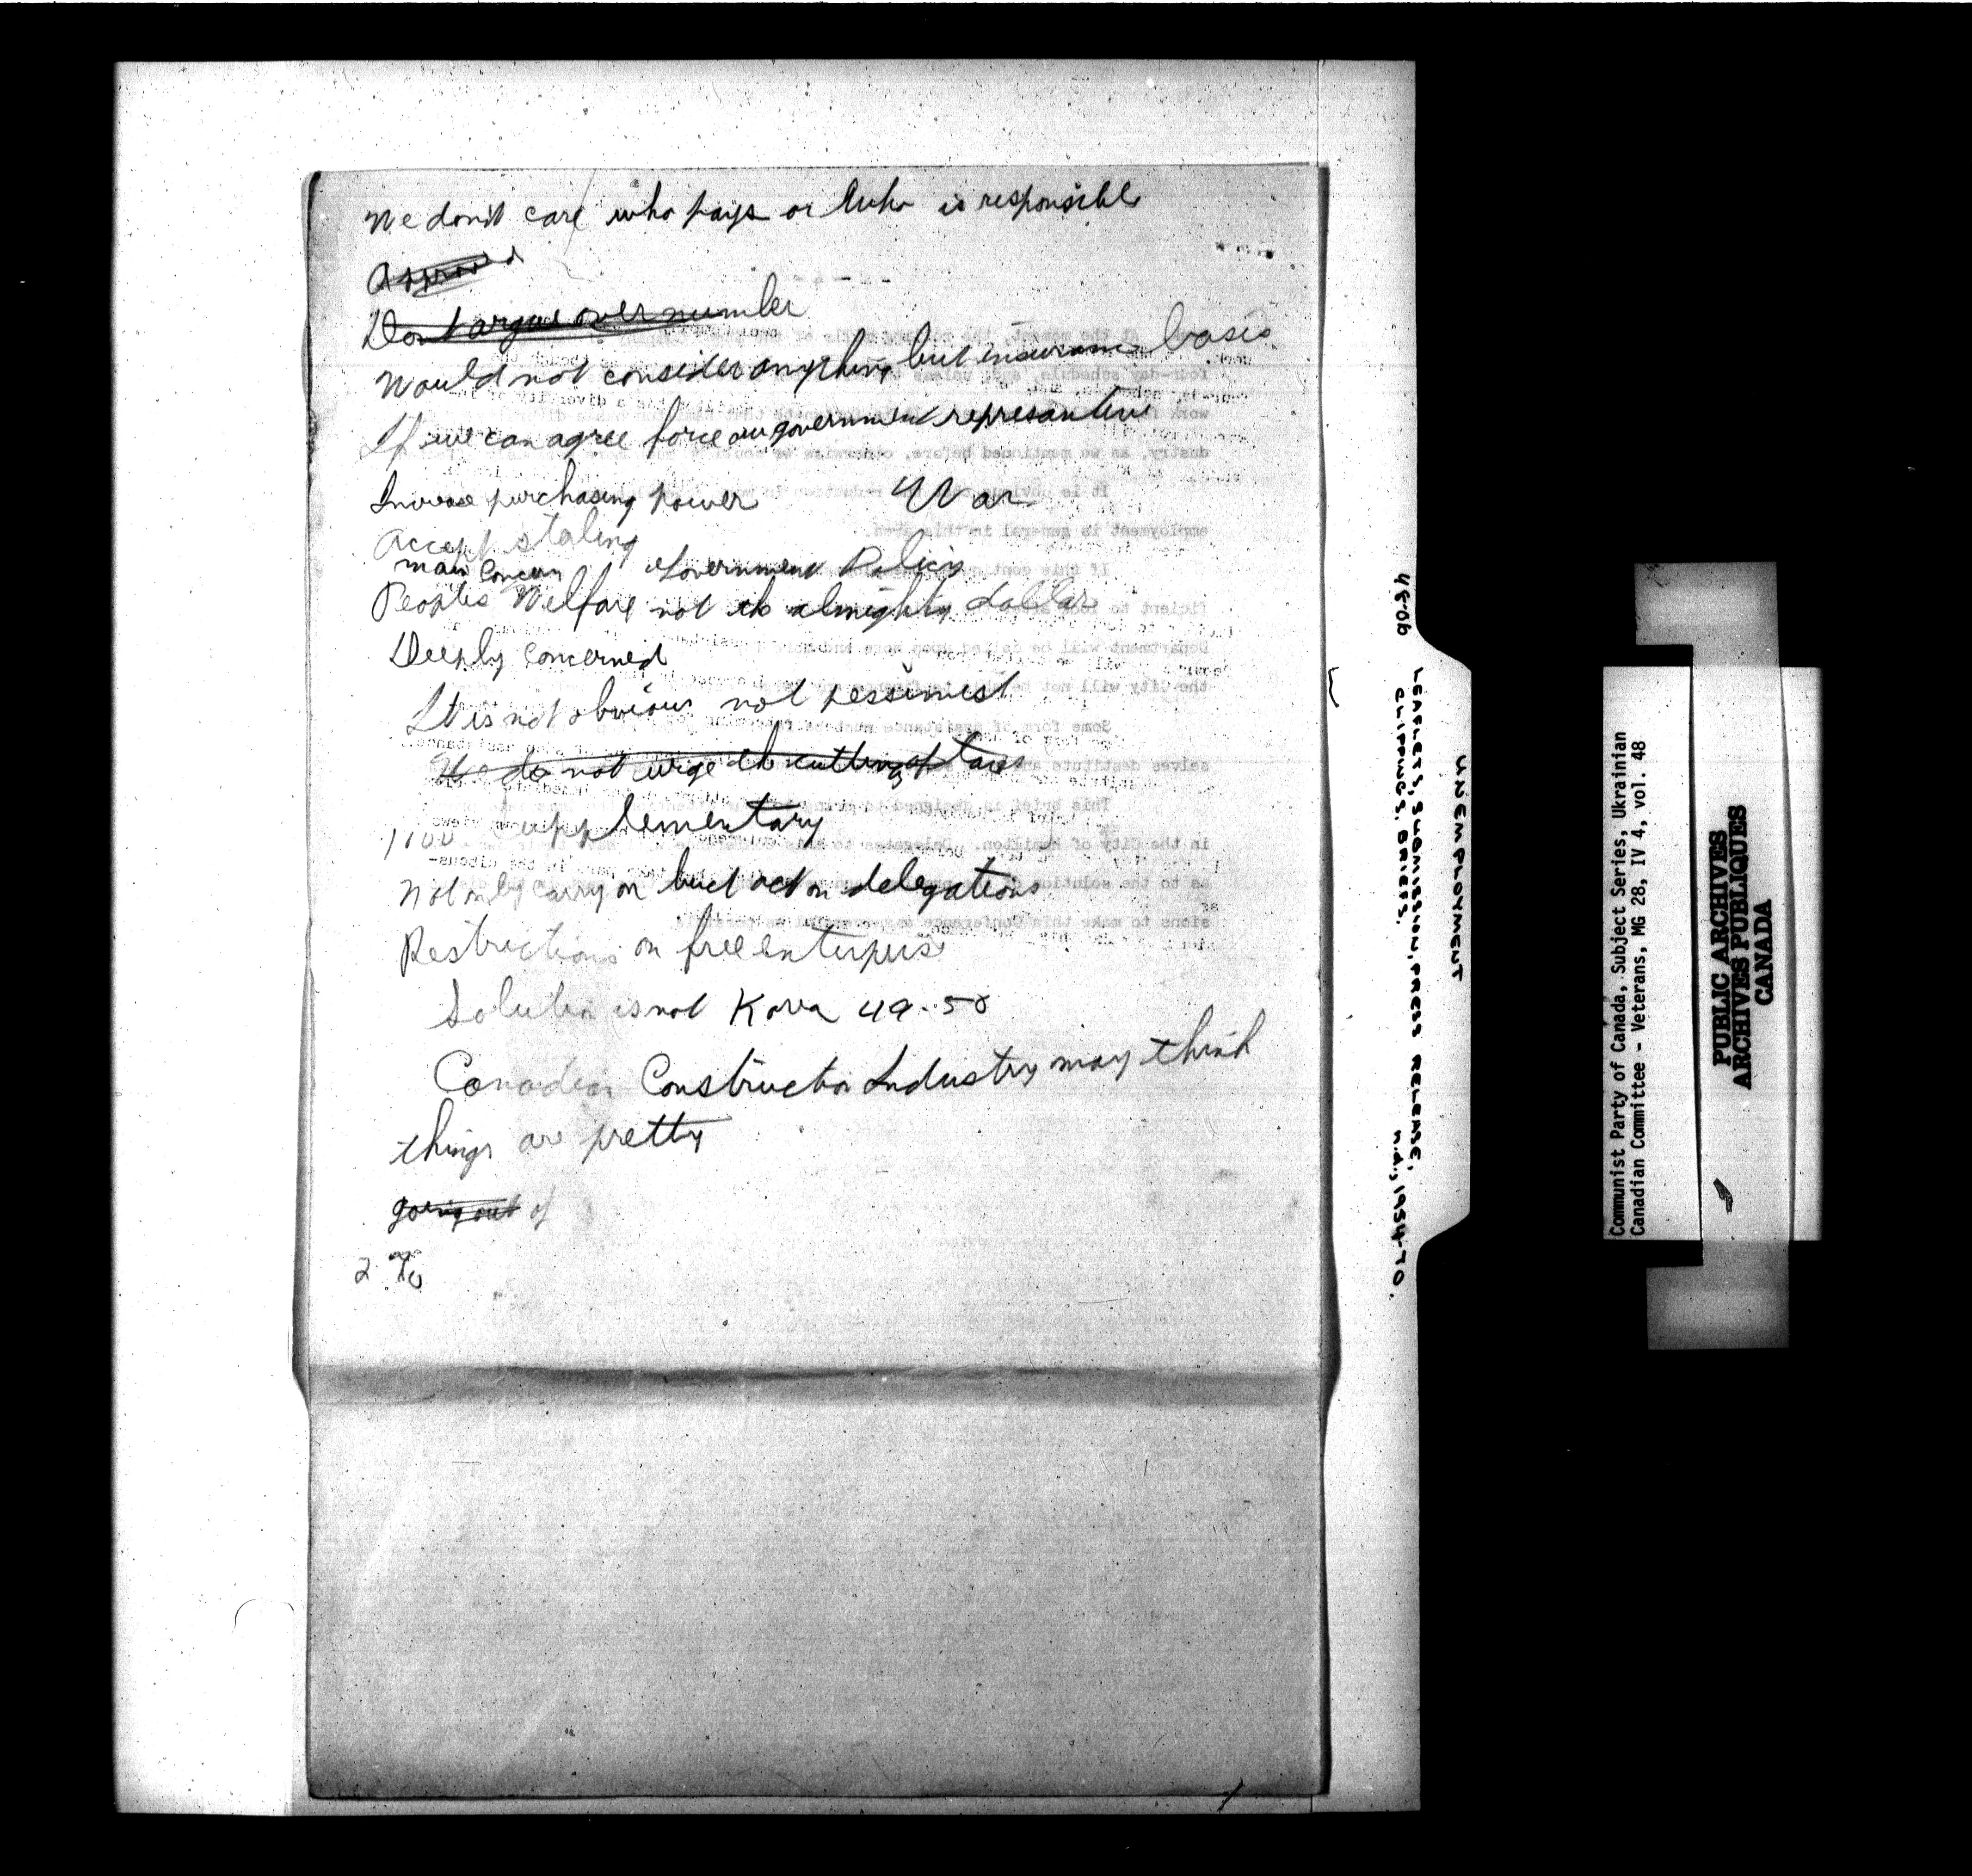 We don't care who pays or who is responsible
Approved
Dont argue over number
Would not consider anything but insurance basis
If we can agree force our government represantive
Increase purchasing power War
accept staling
main concern Government Policy
Peoples Welfare not the almighty dollar
Deeply concerned
It is not obvious not pessimist
We do not urge the cutting of taxes
supplementary
Not only carry on but act on delegations
Restrictions on free enterprise
Solution is not Korea 49-50
Canadian Construction Industry may think
things are pretty
going out of
2
48-06
LEAFLETS, SUBMISSION, PRESS RELEASE,
CLIPPINGS, BRIEFS.
n.d., 1954-70.
UNEMPLOYMENT
Communist Party of Canada, Subject Series, Ukrainian
Canadian Committee - Veterans, MG 28, IV 4, vol. 48
PUBLIC ARCHIVES
ARCHIVES PUBLIQUES
CANADA